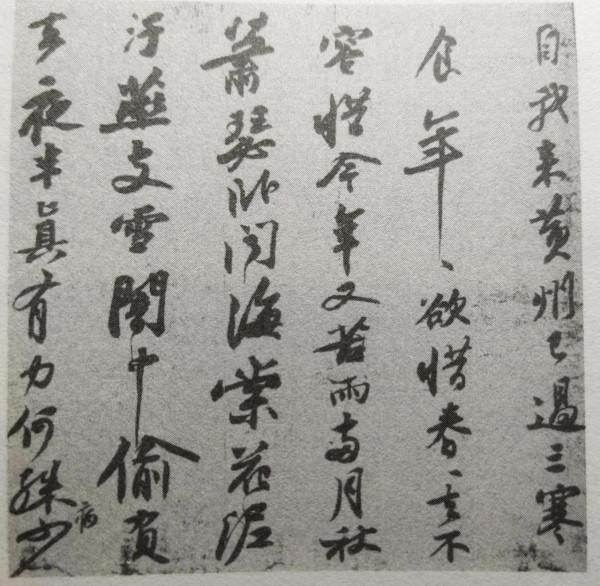 自我来黄州已過三寒
食年〻欲惜春〻去不
容惜今年又苦雨兩月秋
蕭瑟卧聞海棠花泥
汙燕支雪闇中偷負
去夜半真有力何殊病少